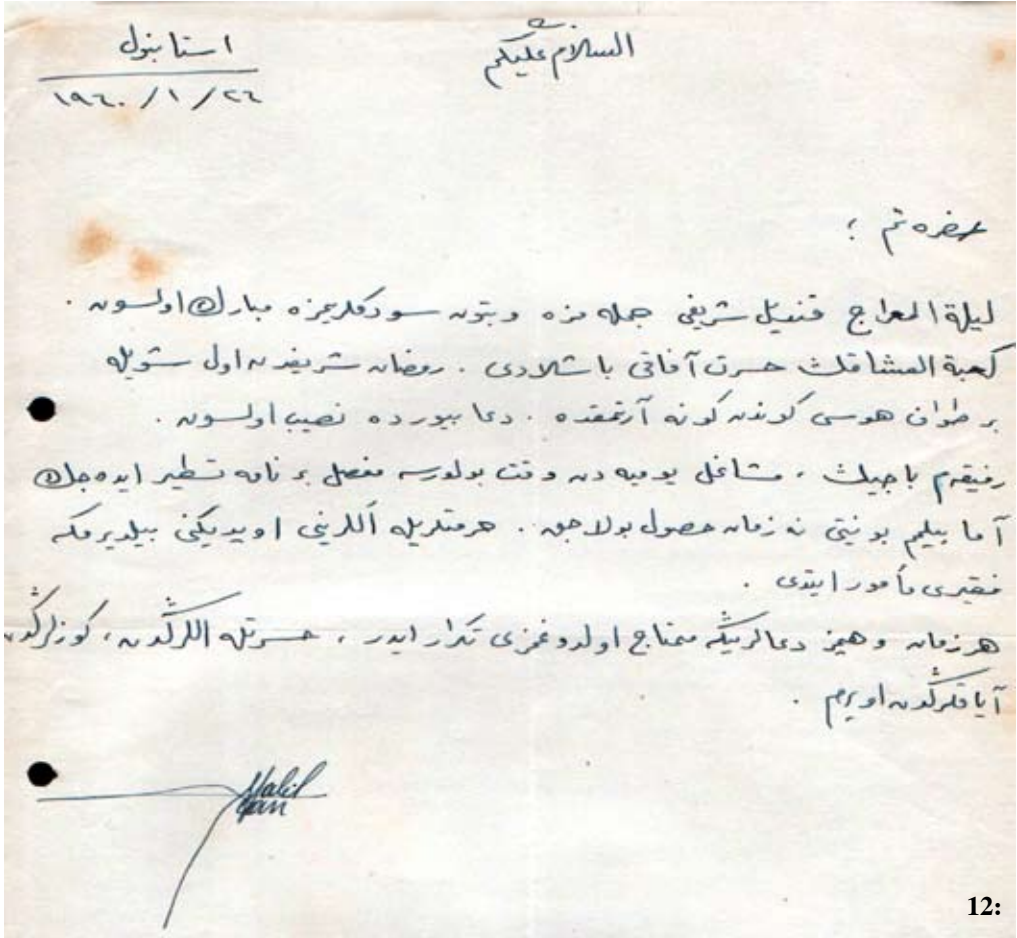 السلام عليكم
استانبول
١٩٦٠/١/٢٤
حضره تم ؛
ليلة المعراج قنديل شريفى جمله مزه وبتون سودكلريمزه مبارك اولسون .
كعبة العشاقك حسرت آفاقى باشلادى . رمضان شريفدن اول شويله
بر طواف هوسى كوندن كونه آرتمقده . دعا بيورده نصيب اولسون .
رفيقه م باجيڭ ، مشاغل يوميه دن وقت بولورسه مفصل بر نامه تسطير ايده جك
آما بيلمم بو نيتى نه زمان حصول بولاجق . حرمتلريله اللرينى اوپديكنى بيلديرمكه
فقيرى مأمور ايتدى .
هر زمان وهميز دعالريڭه محتاج اولدوغمزى تكرار ايدر ، حسرتله اللرڭدن ، كوزلرڭدن
آياقلرڭدن اوپرم .
Halil
Can
12: